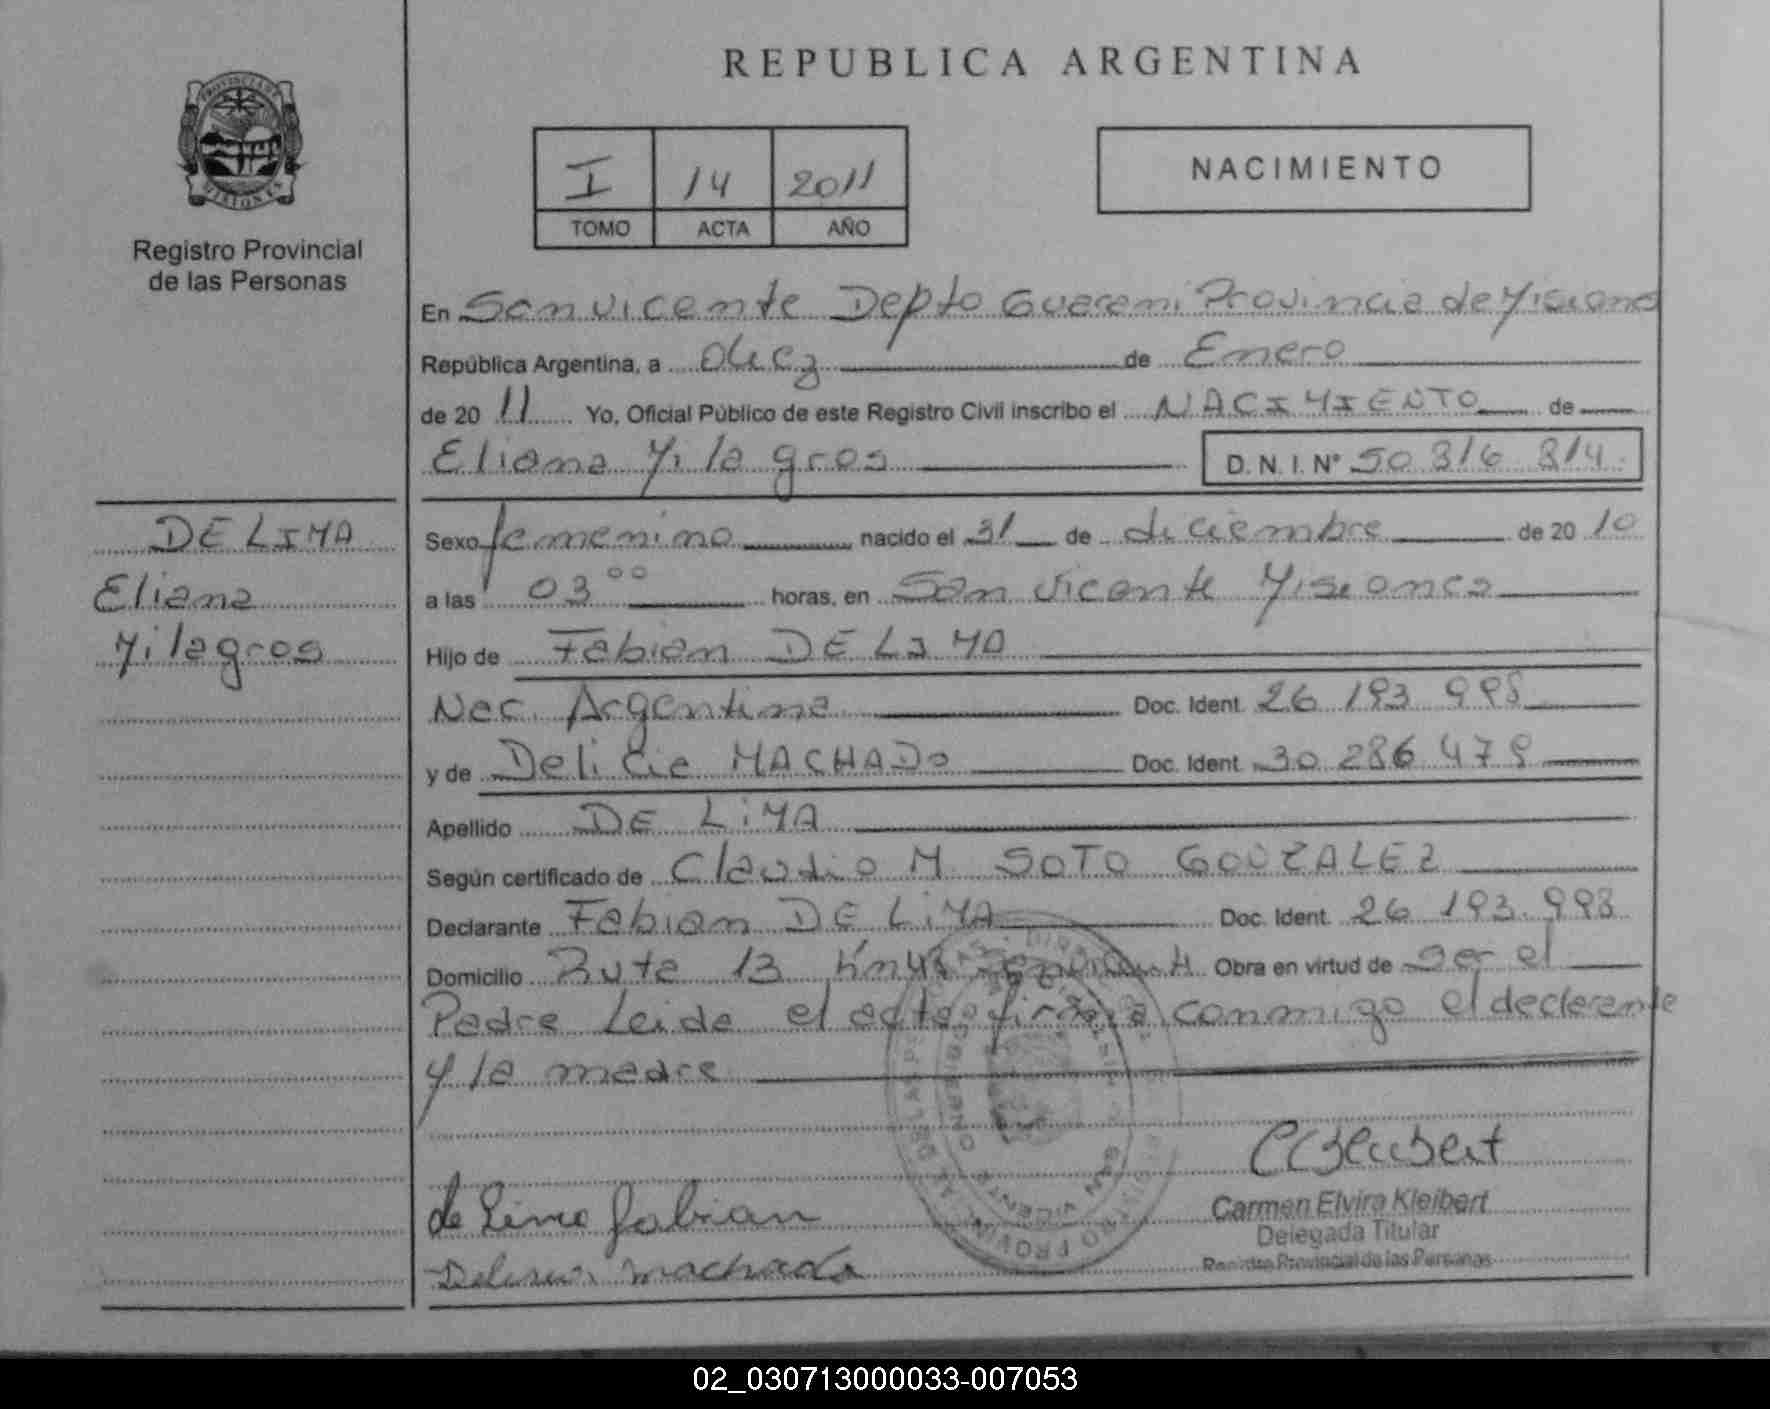 REPUBLICA ARGENTINA
I 14 2011
TOMO ACTA AÑO
NACIMIENTO
PROVINCIA DE MISIONES
Registro Provincial
de las Personas
En San Vicente Depto Guarani Provincia de Misiones
República Argentina, a diez de Enero
de 20 11 Yo, Oficial Público de este Registro Civil inscribo el NACIMIENTO de
Eliana Milagros D. N. I. Nº 50 816 814
DE LIMA
Eliana
Milagros
Sexo femenino nacido el 31 de diciembre de 20 10
a las 03 00 horas, en San Vicente Misiones
Hijo de Fabian DE LIMA
Nac. Argentina Doc. Ident. 26 193 998
y de Delicia MACHADO Doc. Ident. 30 286 479
Apellido DE LIMA
Según certificado de Claudio M SOTO GONZALEZ
Declarante Fabian DE LIMA Doc. Ident. 26 193.998
Domicilio Ruta 13 Obra en virtud de ser el
Padre Leida el acta firma conmigo el declarante
y la madre
de Lima Fabian
machado
Carmen Elvira Kleibert
Delegada Titular
Registro Provincial de las Personas
02_030713000033-007053